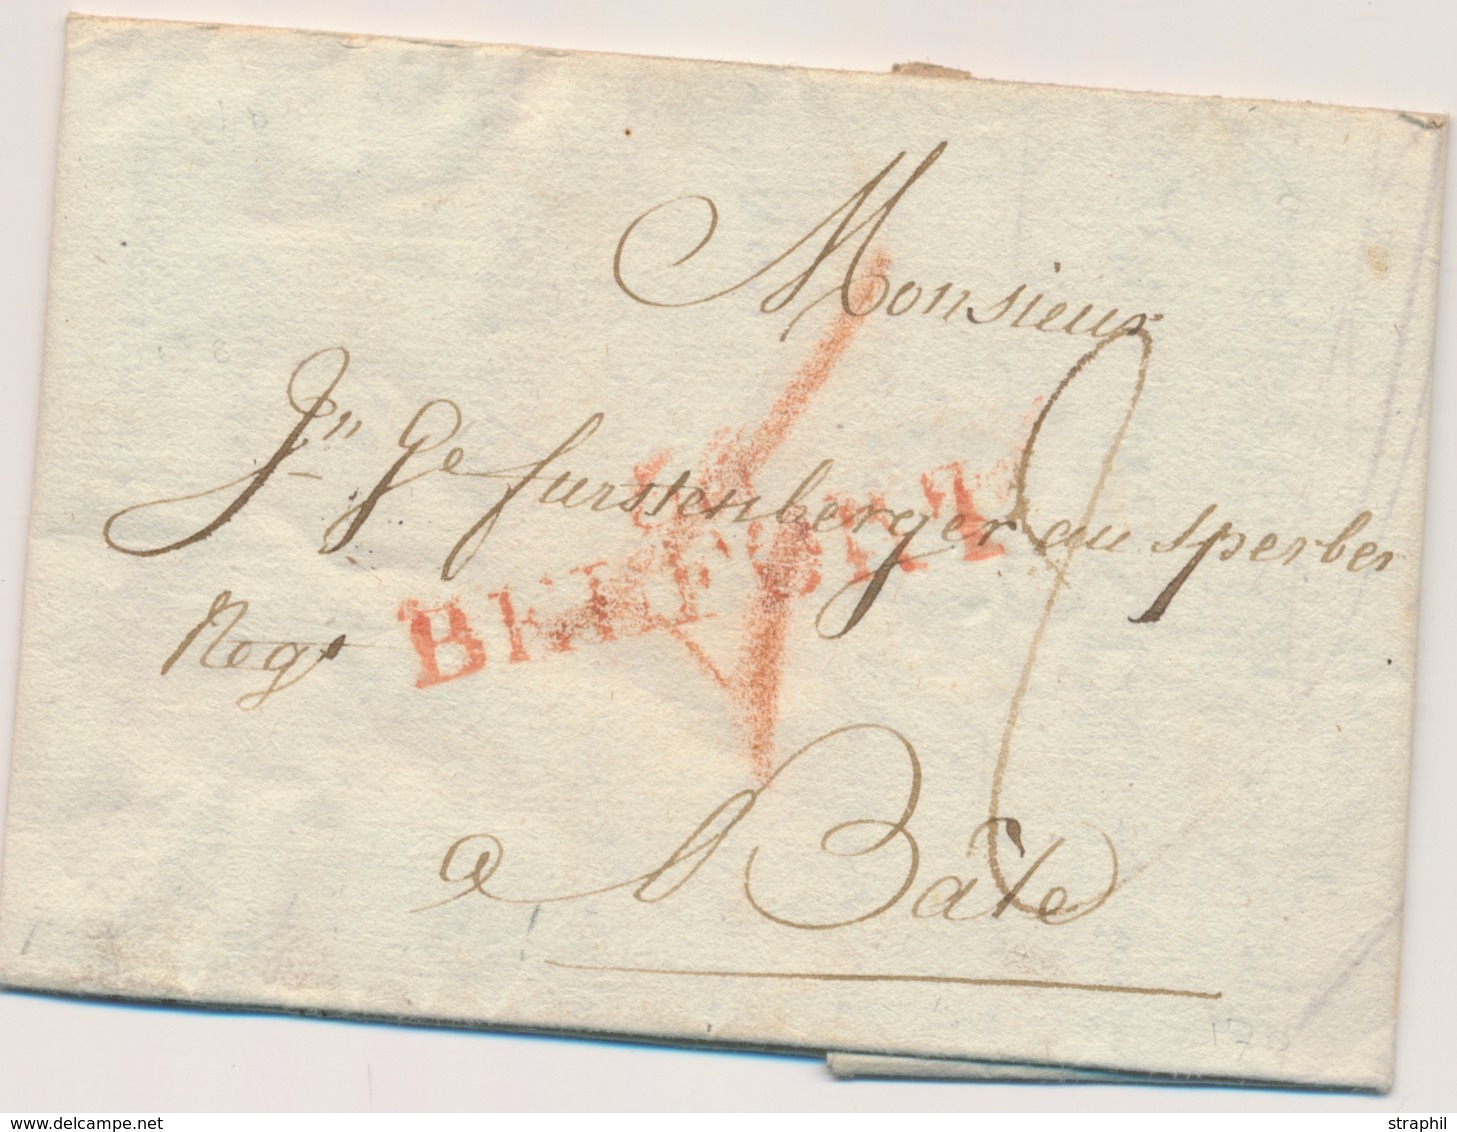 Monsieur
Jn Ge furstenberger au sperber
Nego
BELFORT
a Bâle
www.delcampe.net
straphil